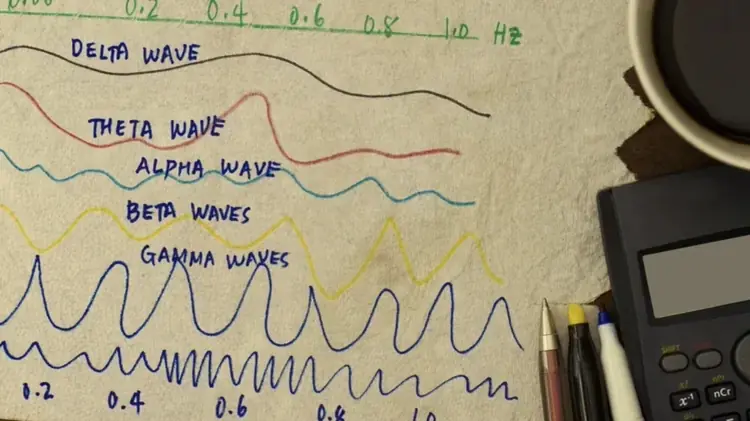 0.2 0.4 0.6 0.8 1.0 HZ
DELTA WAVE
THETA WAVE
ALPHA WAVE
BETA WAVES
GAMMA WAVES
SHIFT
x⁻¹ nCr
0.2 0.4 0.6 0.8 1.0